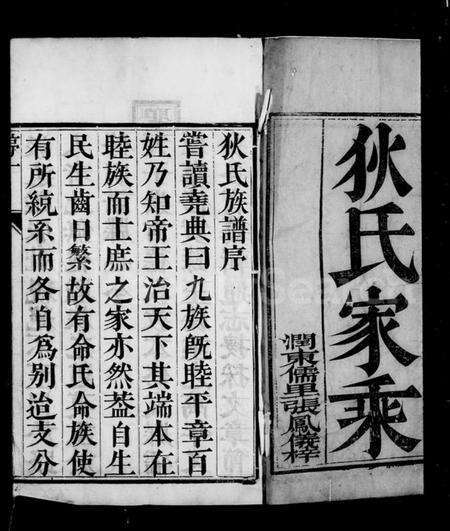 狄氏家乘
潤東儒里張鳳儀梓
狄氏族譜序
嘗讀堯典曰九族旣睦平章百
姓乃知帝王治天下其端本在
睦族而士庶之家亦然葢自生
民生齒日繁故有命氏命族使
有所統系而各自爲別迨支分